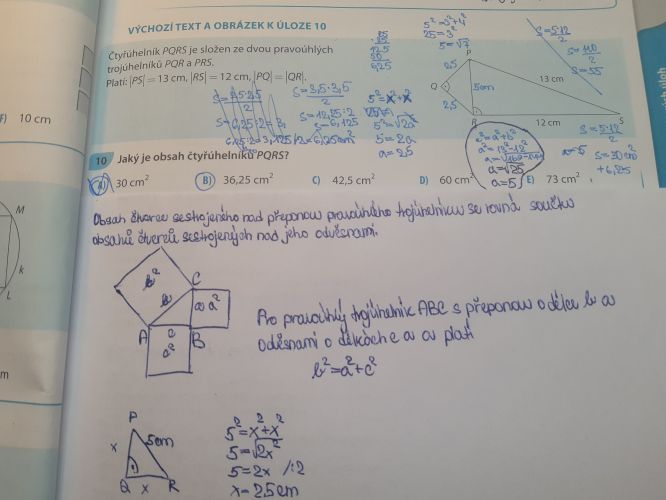 VÝCHOZÍ TEXT A OBRÁZEK K ÚLOZE 10
Čtyřúhelník PQRS je složen ze dvou pravoúhlých
trojúhelníků PQR a PRS.
Platí: |PS| = 13 cm, |RS| = 12 cm, |PQ| = |QR|.
5²=3²+4²
25=3²
S=5·12
S=3,5·3,5
2
S=12,25:2
S=6,125
5²=x²+x²
5²=√2a²
5=2a
a=25
S=6,25:2=3,
P
2,5
Q
2,5
5cm
13 cm
R
12 cm
S
c²=a²+b²
a²=13²-12²
a=√25
a=5
S=5·12
2
S=30cm²
+6,25
10 Jaký je obsah čtyřúhelníku PQRS?
F) 10 cm
A) 30 cm²
B) 36,25 cm²
C) 42,5 cm²
D) 60 cm²
E) 73 cm²
M
k
L
m
Obsah čtverce sestrojeného nad přeponou pravoúhlého trojúhelníku se rovná součtu
obsahů čtverců sestrojených nad jeho odvěsnami.
b²
b
C
a a²
A
c
B
a²
Pro pravoúhlý trojúhelník ABC s přeponou o délce b a
odvěsnami o délkách c a a platí
b²=a²+c²
P
x
5cm
Q x R
5²=x²+x²
5=√2x²
5=2x /:2
x=2,5cm